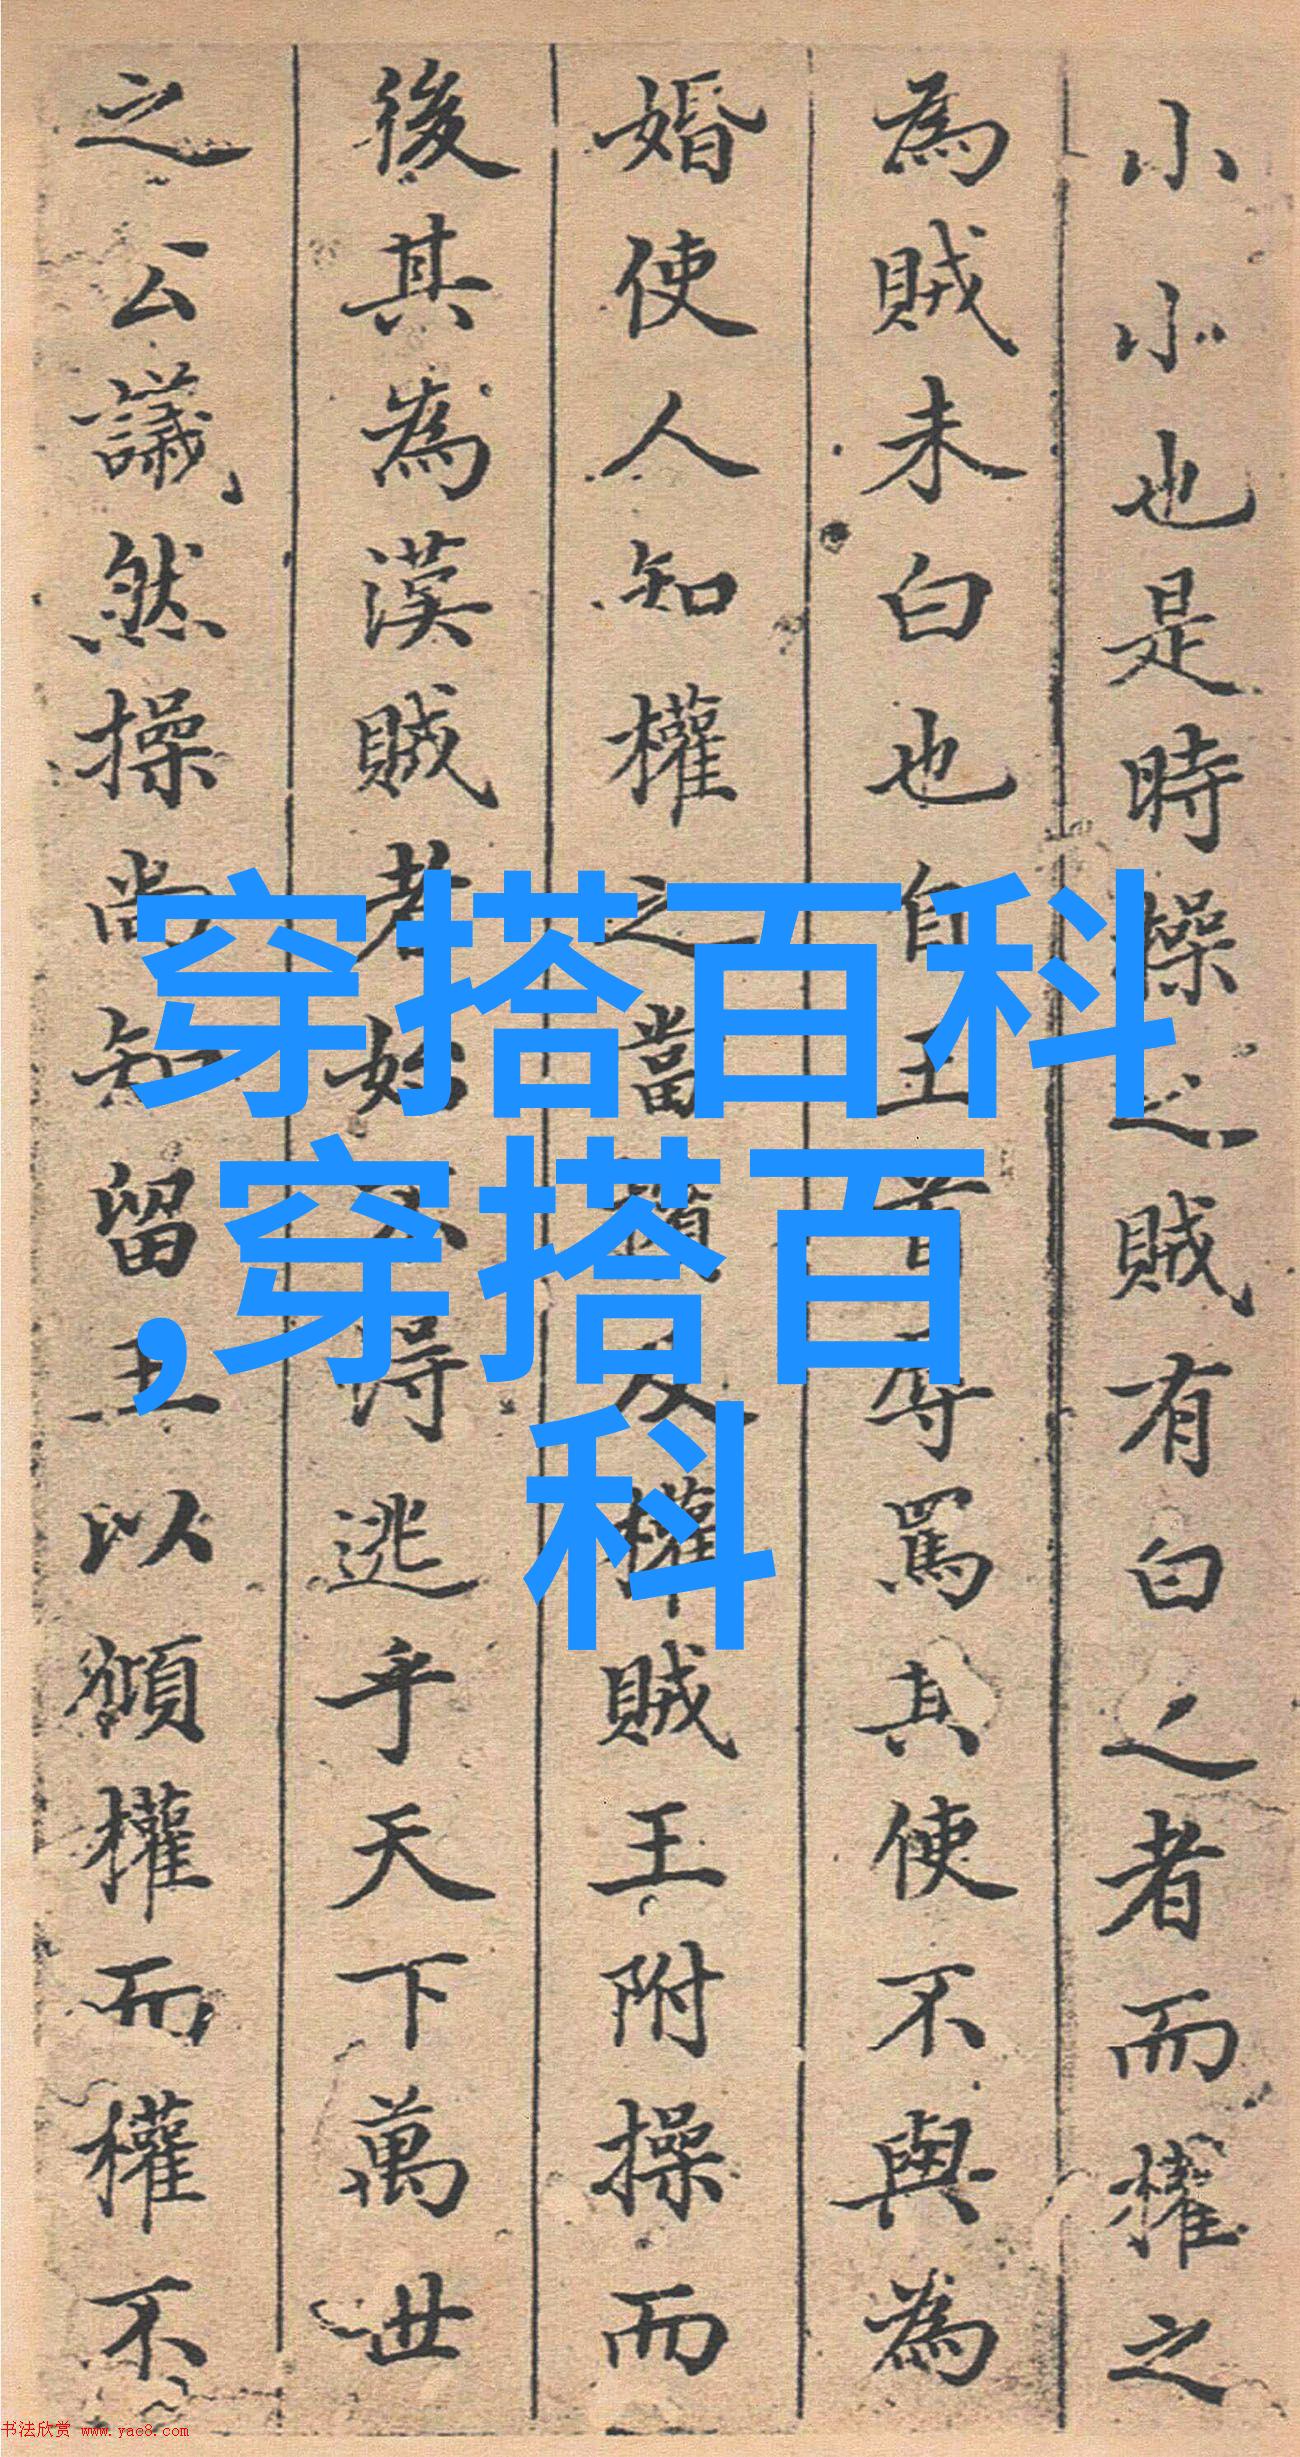 小小也是時操之賊有白之者而權之
為賊未白也自王書辱罵其使不與為
婚使人知權之當 及權賊王附操而
後其為漢賊者始不得逃乎天下萬世
之公議然操尚知留王以頒權而權不
穿搭百科
,穿搭百
科
书法欣赏 www.yac8.com